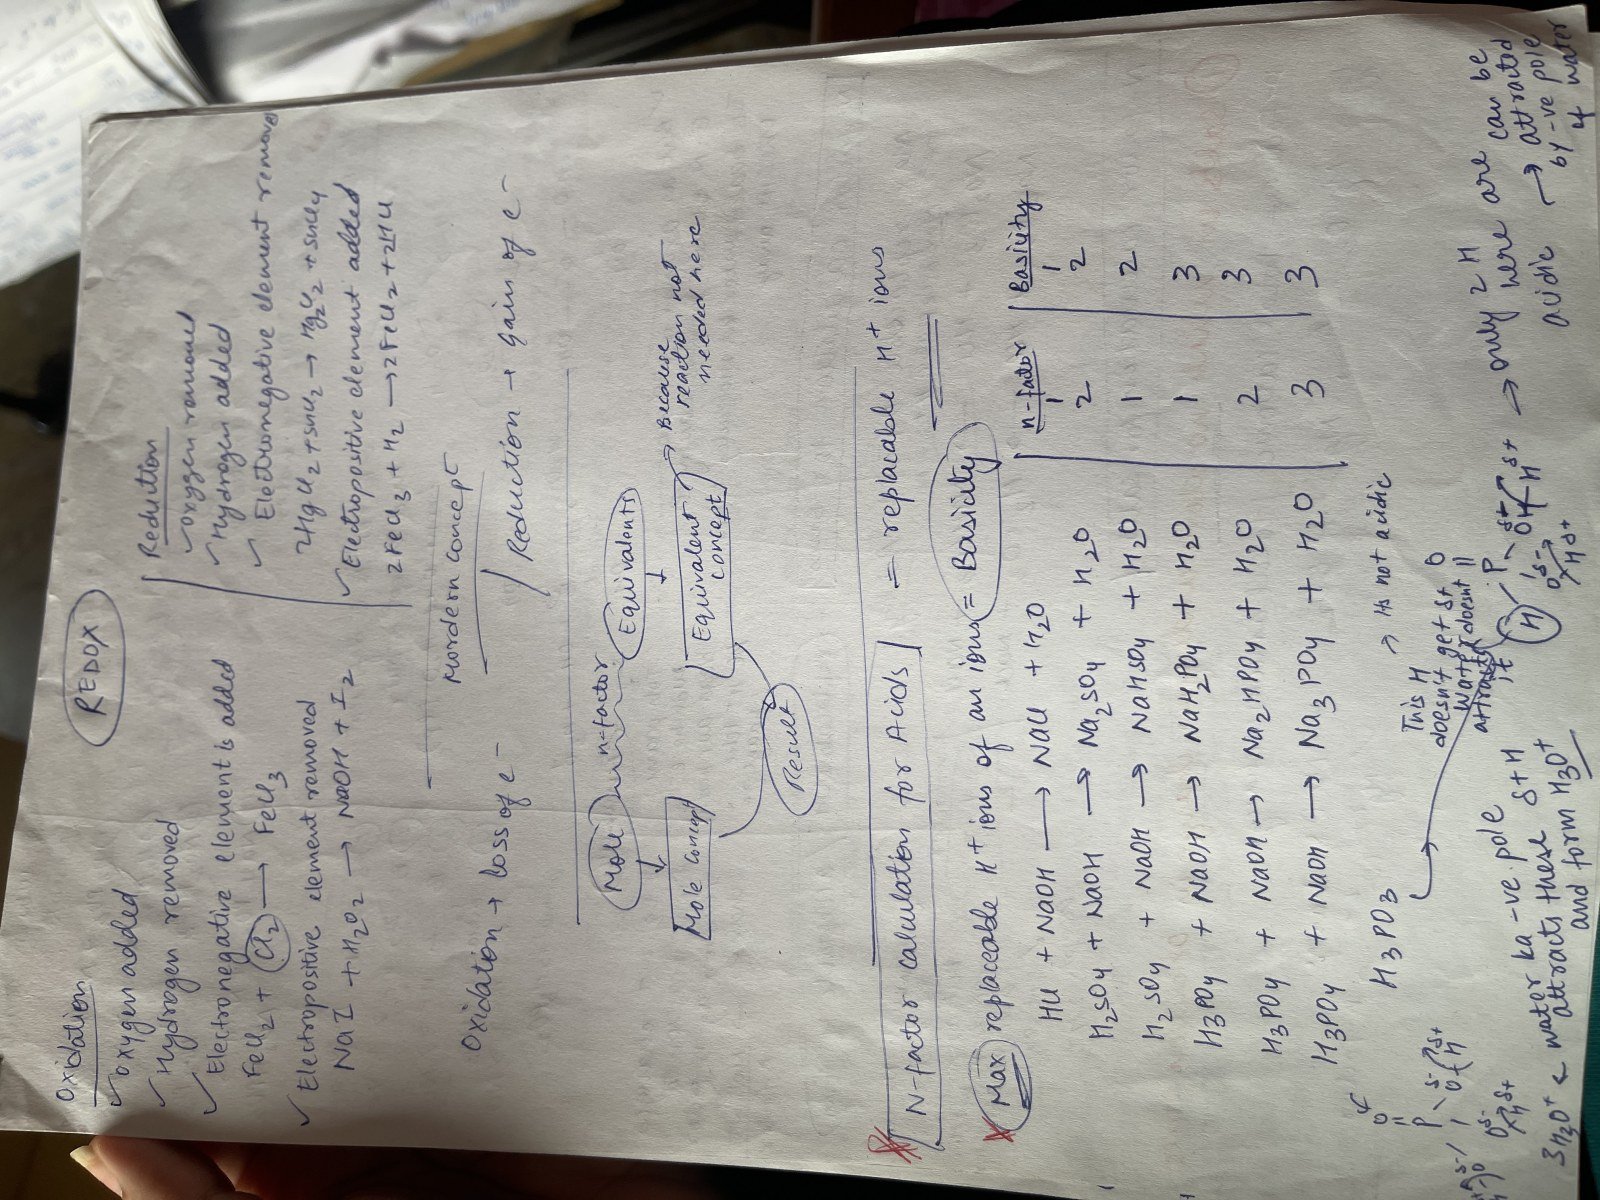 REDOX
Oxidation
✓ oxygen added
✓ Hydrogen removed
✓ Electronegative element is added
FeCl2 + Cl2 → FeCl3
✓ Electropositive element removed
NaI + H2O2 → NaOH + I2
Reduction
✓ oxygen removed
✓ Hydrogen added
✓ Electronegative element remove
2HgCl2 + SnCl2 → Hg2Cl2 + SnCl4
✓ Electropositive element added
2FeCl3 + H2 → 2FeCl2 + 2HCl
Mordern concept
Oxidation → Loss of e⁻ / Reduction → gain of e⁻
Mole n-factor Equivalents
↓ ↓
Mole Concept Equivalent concept → Because reaction not needed here
Result
N-factor calculation for Acids = replacable H+ ions
Max replaceable H+ ions of an ions = Basicity
n-factor | Basicity
HCl + NaOH → NaCl + H2O | 1 | 1
H2SO4 + NaOH → Na2SO4 + H2O | 2 | 2
H2SO4 + NaOH → NaHSO4 + H2O | 1 | 2
H3PO4 + NaOH → NaH2PO4 + H2O | 1 | 3
H3PO4 + NaOH → Na2HPO4 + H2O | 2 | 3
H3PO4 + NaOH → Na3PO4 + H2O | 3 | 3
H3PO3
→ Is not acidic
This H
doesn't get δ+
Water doesn't
attract it
O
P
H
Oδ- Hδ+
→ only 2 H
here are
acidic
→ can be
attracted
by -ve pole
of water
O
P
Oδ- Hδ+
3H3O+ ← water ka -ve pole
attracts these δ+ H
and form H3O+